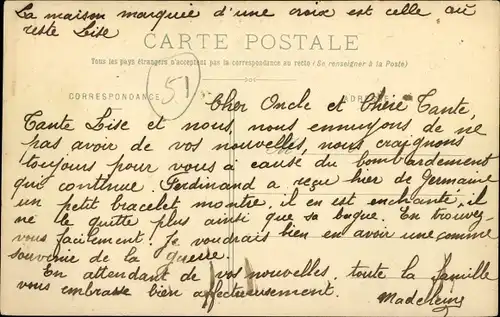 La maison marquée d'une croix est celle où
reste Lise
CARTE POSTALE
Tous les pays étrangers n'acceptent pas la correspondance au recto (Se renseigner à la Poste)
51
CORRESPONDANCE
ADRESSE
Cher Oncle et Chère Tante,
Tante Lise et nous, nous ennuyons de ne
pas avoir de vos nouvelles, nous craignons
toujours pour vous à cause du bombardement
qui continue. Ferdinand a reçu hier de Germaine
un petit bracelet montre, il en est enchanté, il
ne le quitte plus ainsi que sa bague. En trouvez
vous facilement, je voudrais bien en avoir une comme
souvenir de la guerre.
En attendant de vos nouvelles, toute la famille
vous embrasse bien affectueusement.
Madeleine